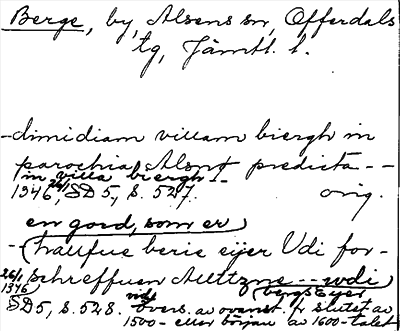 Berge, by, Alsens sn, Offerdals
tg, Jämtl. l.
-dimidiam villam biergh in
parochia Alsnt predicta --
in villa biergh -
1346 26/1, SD 5, S. 527. orig.
en gord, som er
-- (halfue berie eijer Udi for-
26/1 1346 schreffuen Alttzne --- udi
bergs Eyer
SD 5, S. 528. övers. av ovanst. fr slutet av
1500- eller början av 1600-talet